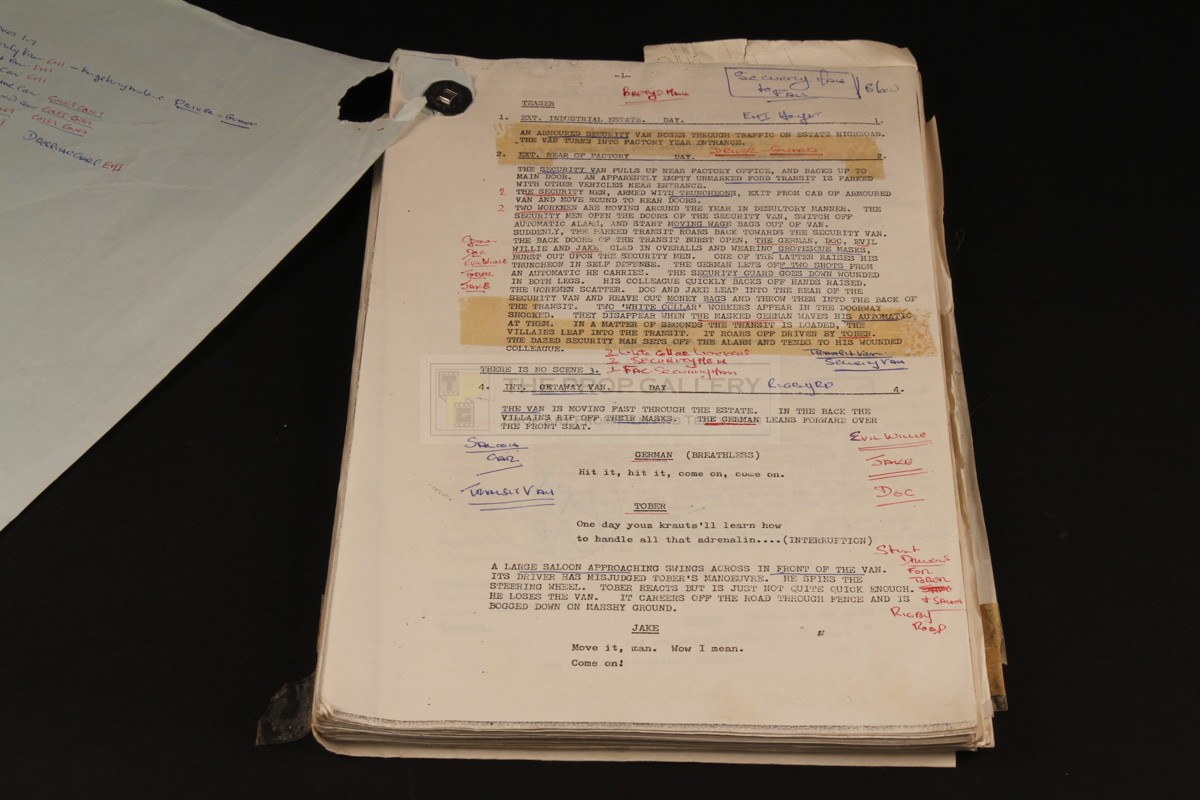 DRIVER - GUARD
EMI
-1-
SECURITY MAN
TO FALL
Blood
TEASER
1. EXT. INDUSTRIAL ESTATE. DAY. EMI Hayes 1.
AN ARMOURED SECURITY VAN NOSES THROUGH TRAFFIC ON ESTATE HIGHROAD.
THE VAN TURNS INTO FACTORY YEAR ENTRANCE.
DRIVER GUARD
2. EXT. REAR OF FACTORY DAY. 2.
THE SECURITY VAN PULLS UP NEAR FACTORY OFFICE, AND BACKS UP TO
MAIN DOOR. AN APPARENTLY EMPTY UNMARKED FORD TRANSIT IS PARKED
WITH OTHER VEHICLES NEAR ENTRANCE.
2 THE SECURITY MEN, ARMED WITH TRUNCHEONS, EXIT FROM CAB OF ARMOURED
VAN AND MOVE ROUND TO REAR DOORS.
2 TWO WORKMEN ARE MOVING AROUND THE YEAR IN DESULTORY MANNER. THE
SECURITY MEN OPEN THE DOORS OF THE SECURITY VAN, SWITCH OFF
AUTOMATIC ALARM, AND START MOVING WAGE BAGS OUT OF VAN.
SUDDENLY, THE PARKED TRANSIT ROARS BACK TOWARDS THE SECURITY VAN.
THE BACK DOORS OF THE TRANSIT BURST OPEN, THE GERMAN, DOC, EVIL
WILLIE AND JAKE CLAD IN OVERALLS AND WEARING GROTESQUE MASKS,
BURST OUT UPON THE SECURITY MEN. ONE OF THE LATTER RAISES HIS
TRUNCHEON IN SELF DEFENSE. THE GERMAN LETS OFF TWO SHOTS FROM
AN AUTOMATIC HE CARRIES. THE SECURITY GUARD GOES DOWN WOUNDED
IN BOTH LEGS. HIS COLLEAGUE QUICKLY BACKS OFF HANDS RAISED.
THE WORKMEN SCATTER. DOC AND JAKE LEAP INTO THE REAR OF THE
SECURITY VAN AND HEAVE OUT MONEY BAGS AND THROW THEM INTO THE BACK OF
THE TRANSIT. TWO 'WHITE COLLAR' WORKERS APPEAR IN THE DOORWAY
SHOCKED. THEY DISAPPEAR WHEN THE MASKED GERMAN WAVES HIS AUTOMATIC
AT THEM. IN A MATTER OF SECONDS THE TRANSIT IS LOADED, THE
VILLAINS LEAP INTO THE TRANSIT. IT ROARS OFF DRIVEN BY TOBER.
THE DAZED SECURITY MAN SETS OFF THE ALARM AND TENDS TO HIS WOUNDED
COLLEAGUE.
German
Doc
Evil Willie
TOBER
JAKE
2 White Collar Workers
2 SECURITY MEN
1 FAC Security Man
TRANSIT VAN
SECURITY VAN
THERE IS NO SCENE 3.
THE PROP GALLERY
4. INT. GETAWAY VAN. DAY RIGBY RD 4.
THE VAN IS MOVING FAST THROUGH THE ESTATE. IN THE BACK THE
VILLAINS RIP OFF THEIR MASKS. THE GERMAN LEANS FORWARD OVER
THE FRONT SEAT.
SALOON
CAR
TRANSIT VAN
EVIL WILLIE
JAKE
DOC
GERMAN (BREATHLESS)
Hit it, hit it, come on, come on.
TOBER
One day youz krauts'll learn how
to handle all that adrenalin....(INTERRUPTION)
Stunt
Drivers
FOR
TOBER
+ SALOON
RIGBY
ROAD
A LARGE SALOON APPROACHING SWINGS ACROSS IN FRONT OF THE VAN.
ITS DRIVER HAS MISJUDGED TOBER'S MANOEUVRE. HE SPINS THE
STEERING WHEEL. TOBER REACTS BUT IS JUST NOT QUITE QUICK ENOUGH.
HE LOSES THE VAN. IT CAREERS OFF THE ROAD THROUGH FENCE AND IS
BOGGED DOWN ON MARSHY GROUND.
JAKE
Move it, man. Wow I mean.
Come on!